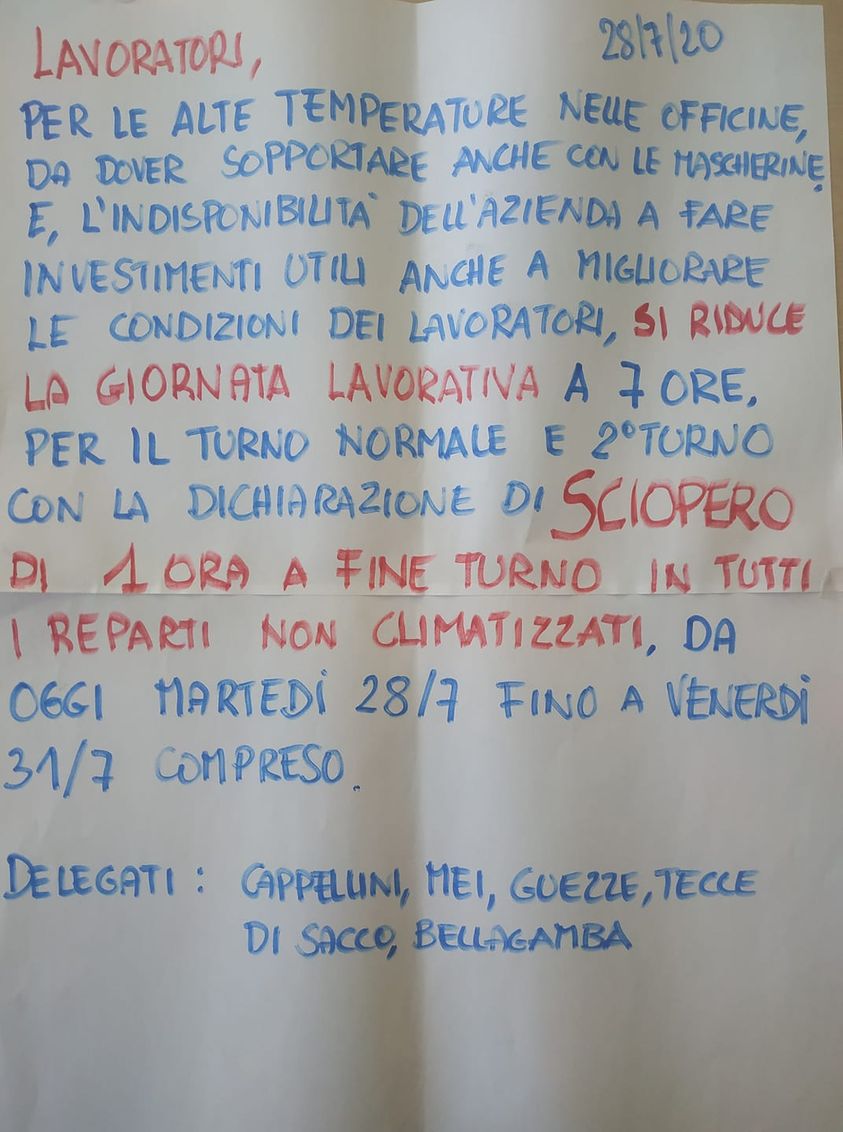 LAVORATORI, 28/7/20
PER LE ALTE TEMPERATURE NELLE OFFICINE,
DA DOVER SOPPORTARE ANCHE CON LE MASCHERINE
E, L'INDISPONIBILITA' DELL'AZIENDA A FARE
INVESTIMENTI UTILI ANCHE A MIGLIORARE
LE CONDIZIONI DEI LAVORATORI, SI RIDUCE
LA GIORNATA LAVORATIVA A 7 ORE,
PER IL TURNO NORMALE E 2° TURNO
CON LA DICHIARAZIONE DI SCIOPERO
DI 1 ORA A FINE TURNO IN TUTTI
I REPARTI NON CLIMATIZZATI, DA
OGGI MARTEDÌ 28/7 FINO A VENERDÌ
31/7 COMPRESO.
DELEGATI: CAPPELLINI, MEI, GUEZZE, TECCE
DI SACCO, BELLAGAMBA